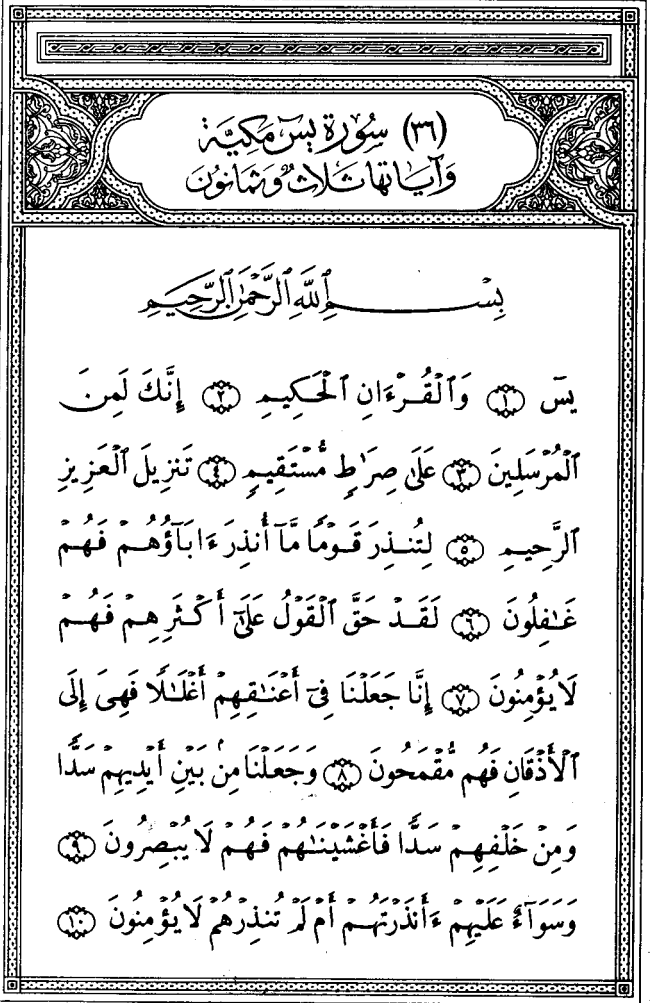 (٣٦) سُورَة يسٓ مَكيَّة
وَآيَاتهَا ثَلَاثٌ وَثَمَانُونَ
بِسْمِ ٱللَّهِ ٱلرَّحْمَٰنِ ٱلرَّحِيمِ
يسٓ ﴿١﴾ وَٱلْقُرْءَانِ ٱلْحَكِيمِ ﴿٢﴾ إِنَّكَ لَمِنَ
ٱلْمُرْسَلِينَ ﴿٣﴾ عَلَىٰ صِرَٰطٍ مُّسْتَقِيمٍ ﴿٤﴾ تَنزِيلَ ٱلْعَزِيزِ
ٱلرَّحِيمِ ﴿٥﴾ لِتُنذِرَ قَوْمًا مَّآ أُنذِرَ ءَابَآؤُهُمْ فَهُمْ
غَٰفِلُونَ ﴿٦﴾ لَقَدْ حَقَّ ٱلْقَوْلُ عَلَىٰٓ أَكْثَرِهِمْ فَهُمْ
لَا يُؤْمِنُونَ ﴿٧﴾ إِنَّا جَعَلْنَا فِىٓ أَعْنَٰقِهِمْ أَغْلَٰلًا فَهِىَ إِلَى
ٱلْأَذْقَانِ فَهُم مُّقْمَحُونَ ﴿٨﴾ وَجَعَلْنَا مِنۢ بَيْنِ أَيْدِيهِمْ سَدًّا
وَمِنْ خَلْفِهِمْ سَدًّا فَأَغْشَيْنَٰهُمْ فَهُمْ لَا يُبْصِرُونَ ﴿٩﴾
وَسَوَآءٌ عَلَيْهِمْ ءَأَنذَرْتَهُمْ أَمْ لَمْ تُنذِرْهُمْ لَا يُؤْمِنُونَ ﴿١٠﴾